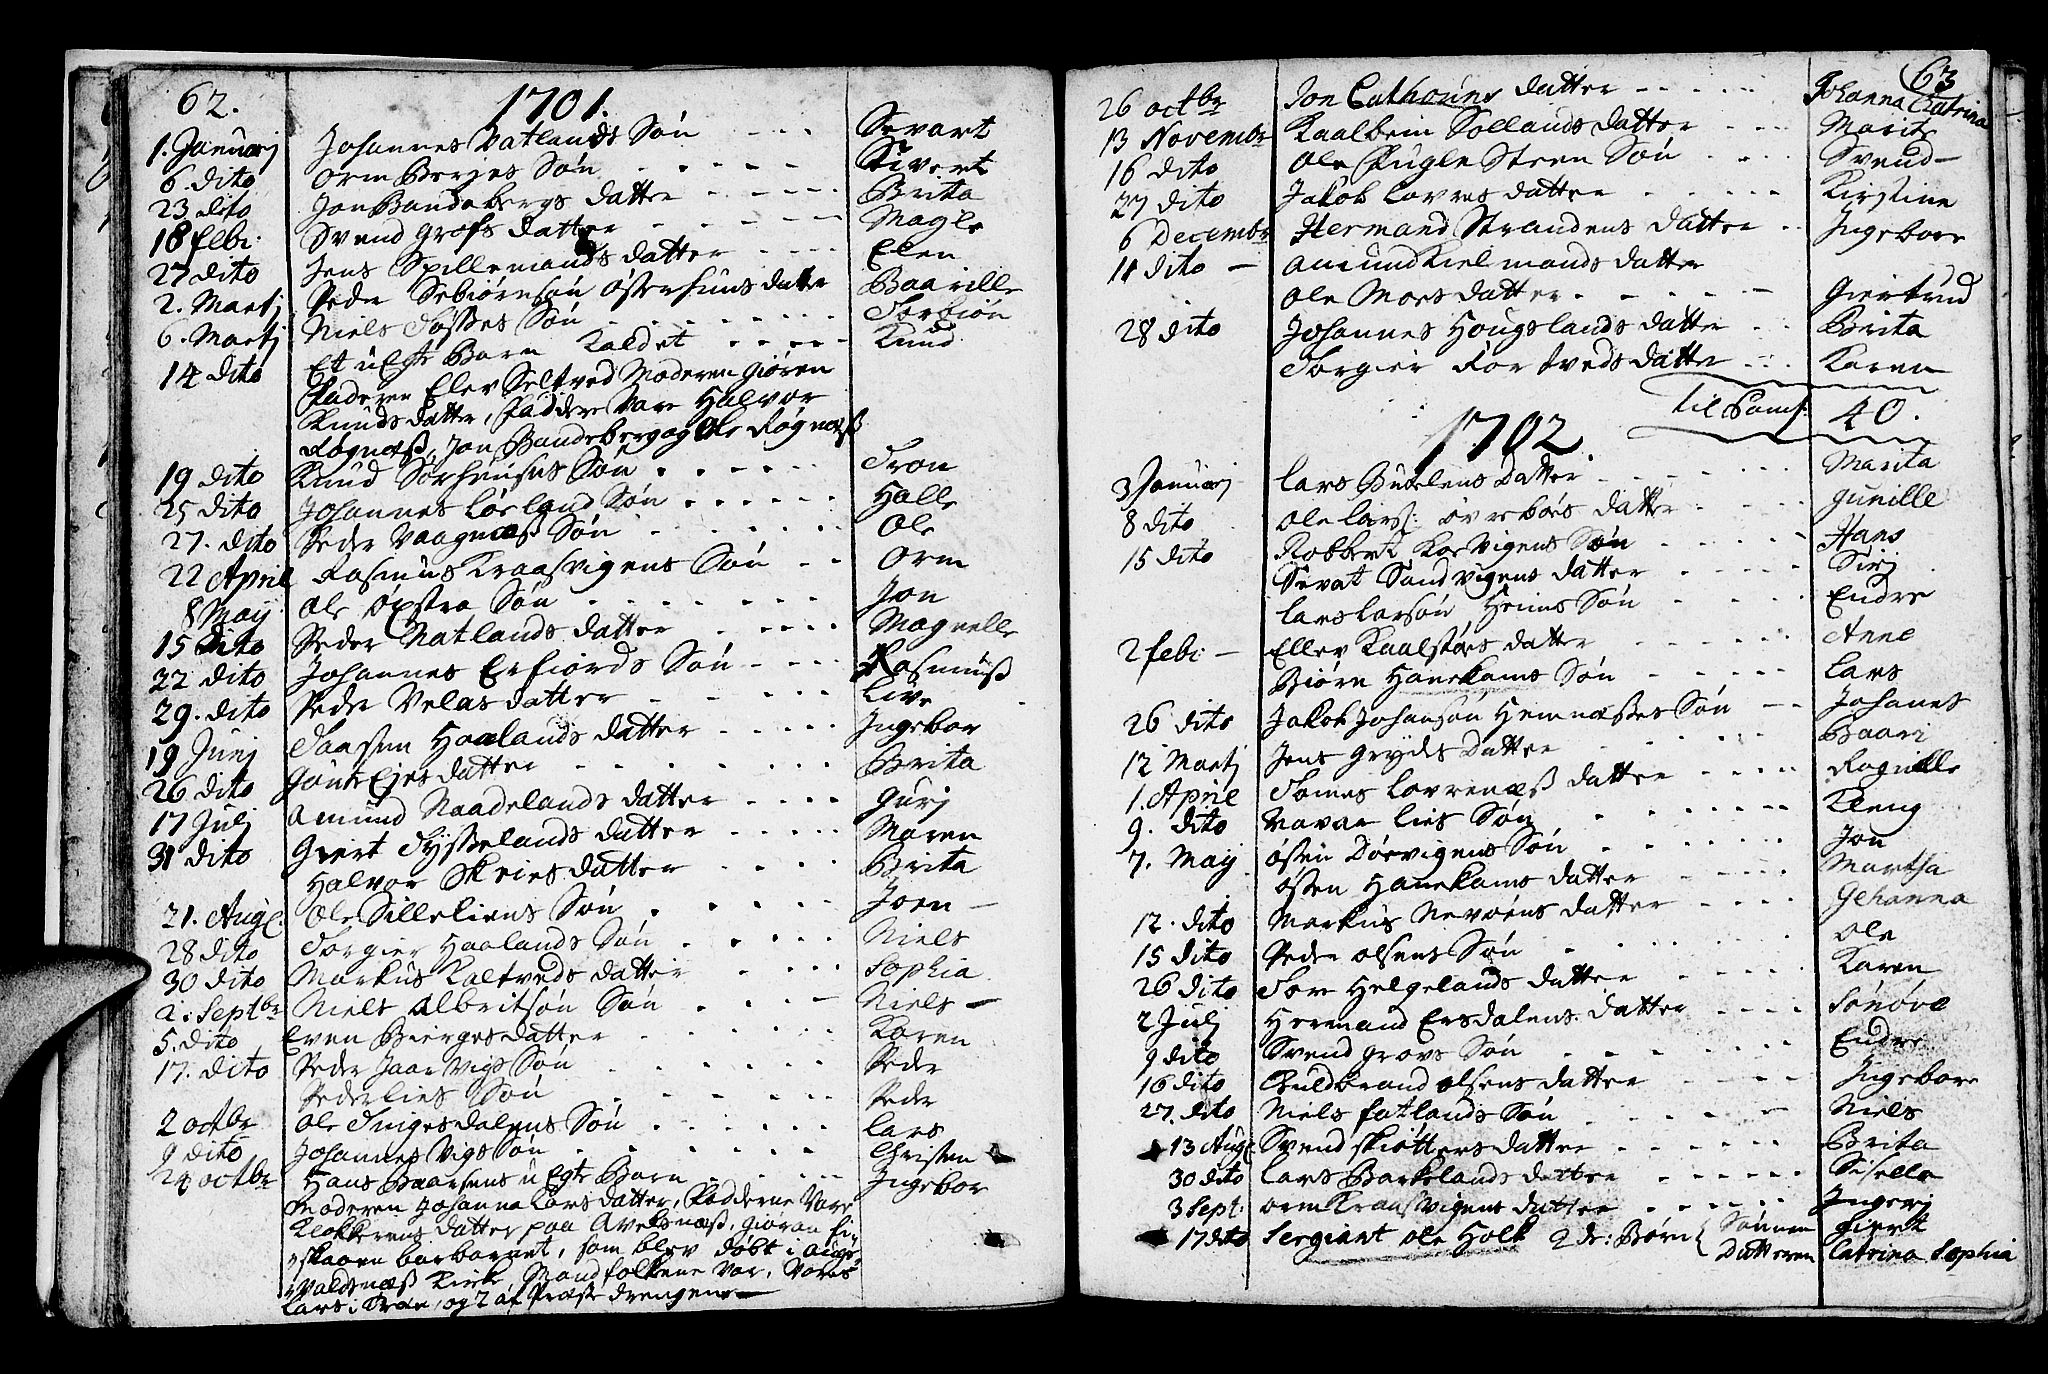 62.
1701.
1. Januarj Johannes Vatlands Søn - - - Sevart
6 dito Orm Berjes Søn - - - - Sivert
23 dito Jon Bandebergs datter - - - - Brita
18 febr: Svend Grofs datter - - - - Magle
27 dito Jens Spillemands datter - - - Elen
2. Martj Peder Sebiørnsøn Østerhuus datter Baarille
6. Martj Niels Tøsses Søn - - - - - - Torbiøn
14 dito Et uEgte Barn kaldet - - - - Knud
Faderen Elev Seltved Moderen Giøren
Knuds datter, Faddere Vare Halvor
Røgnæss, Jon Bandeberg og Ole Røgnæss
19 dito Knud Sørhuuses Søn - - - - - Tron
25 dito Johannes Løeland Søn - - - - - Halle
27. dito Peder Vaagnæss Søn - - - - - Ole
22 April Rasmus Kraasvigens Søn - - Orm
8 Maij Ole Øxstra Søn - - - - - - Jon
15 dito Peder Natlands datter - - - - Magnelle
22 dito Johannes Erfiords Søn - - - Rasmuss
29. dito Peder Velas datter - - - - - Live
19 Junj Haalands datter - - - - Ingebor
26 dito Ejes datter - - - - - - Brita
17 Julj Amund Naadelands datter - - - - Gurj
31 dito Giert Tysselands datter - - - - Maren
Halvor Skeies datter - - - Brita
21. Aug: Ole Silleliens Søn - - - - - Joen -
28 dito Torgier Haalands Søn - - - - Niels
30 dito Markus Kaltveds datter - - - - Sophia
2. Septbr Niels Albritsøn Søn - - - Niels -
5. dito Even Bierges datter - - - - - Karen
17. dito Peder Jaarvigs Søn - - - - - Peder
Peder Lies Søn - - - - - Peder
2 octbr Ole Tingesdalens Søn - - - - - Lars
9 dito Johannes Vigs Søn - - - - - - Christen
24 octbr Hans Baarsens uEgte Barn - - - - Ingebor
Moderen Johanna Lars datter, Fadderne Vare
Klokkerens datter paa Avelsnæss, Giøran
skaaren bar barnet, som blev døbt i Aug-
valdsnæss Kirke, Mandfolkene Var,
Lars i, og 2 af Præste drengene

63
26 octbr Jon Cathouns datter - - - - - Johanna Catrina
13 Novembr Kaalbein Sollands datter - - - Marite
16 dito Ole Fugle Steen Søn - - - Svend -
27 dito Jakob Lovres datter - - - - - Kirstine
6 Decembr Hermand Strandens datter - - Ingebore
11 dito - Amund Kielmands datter
Ole Moes datter - - - - - Giertrud
28 dito Johannes Hougslands datter - - Brita
Torgier Fortveds datter - - - Karen
Til Sams: 40.
1702.
3 Januarj Lars datter - - - - - Marita
8 dito Ole Lars: Øvrebøes datter - - - Gunille
15 dito Robbert Korvigens Søn - - - - - Hans
Sevat Sandvigens datter - - - - - Sirj
Lars Larsøn Heims Søn - - - - Endre
2 febr: - Ellev Kaalstøes datter - - - - - Anne
Biørn Hanekams Søn - - - - - Lars
26 dito Jakob Johansøn Hemnæsses Søn - - Johanes
12 Martj Jens Gryds datter - - - - - Baari
1. April Tomes Lovrenæss datter - - - - Ragnelle
9. dito Vavar Lies Søn - - - - - Kleng
7. Maij Østen Dørvigens Søn - - - - - - Jon
Østen Hanekams datter - - - - Martha
12. dito Markus Nevøens datter - - - - Gehanna
15 dito Peder Olsens Søn - - - - - Ole
26 dito Tore Helgelands datter - - - - - Karen
2 Julj Hermand Ersdalens datter - - - - Sønøve
9 dito Svend Grovs Søn - - - - - - Endre
16 dito Guldbrand Olsens datter - - - - Ingebore
27. dito Niels Fatlands Søn - - - - Niels
13 Aug: Svend skiøtters datter - - - - - - Brita
30 dito Lars Barkelands datter - - - - - Siselle
3 Sept: Orm Kraasvigens datter - - - - - Ingerj
17 dito Sergiant Ole Holk 2 de: Børn { Sønnen Giert
Datteren Catrina Sophia